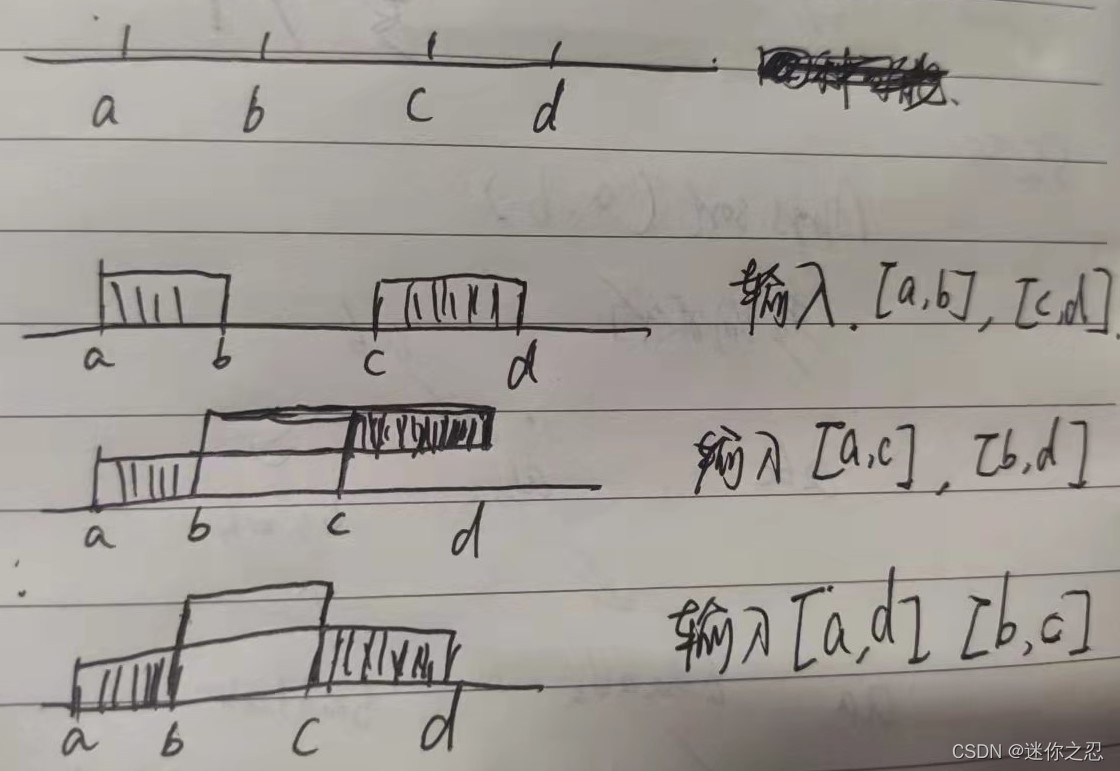 a b c d
输入. [a,b], [c,d]
a b c d
输入 [a,c], [b,d]
a b c d
输入 [a,d] [b,c]
a b c d
CSDN @迷你之忍